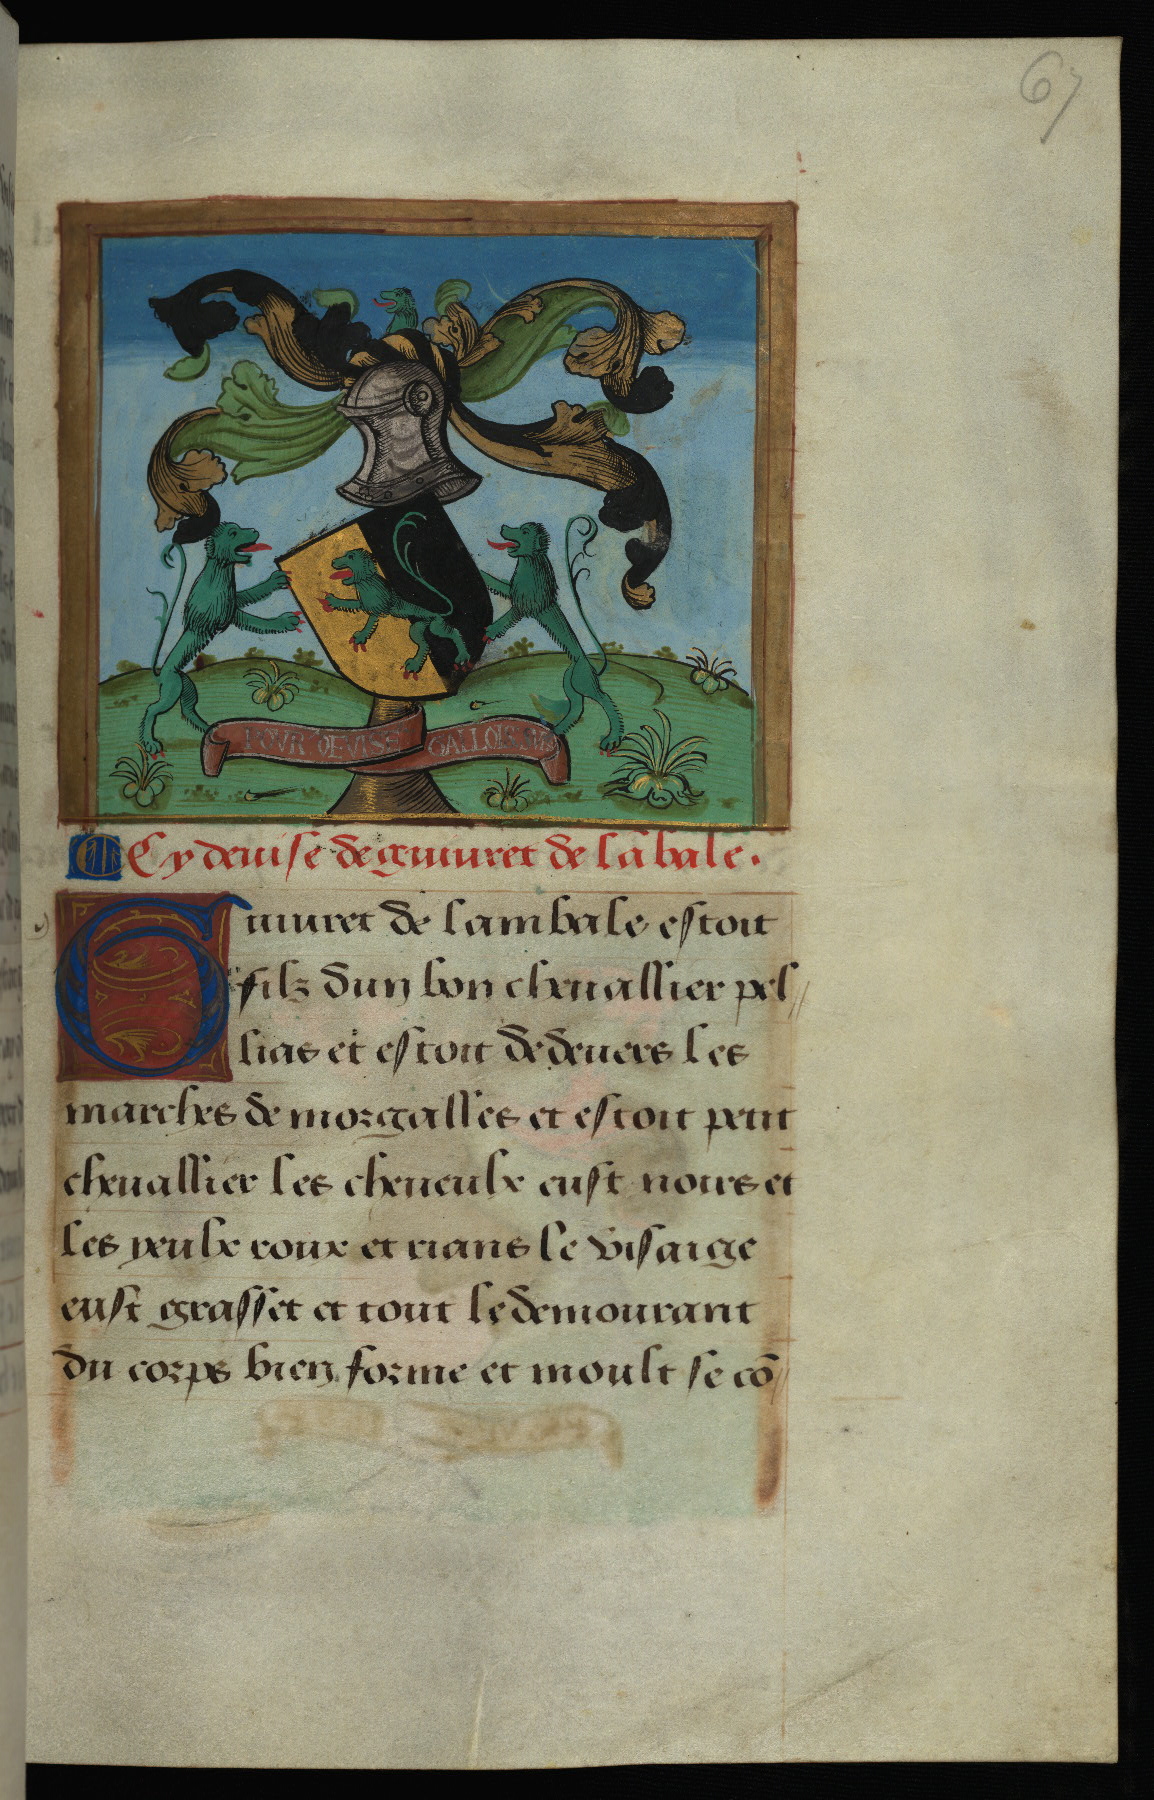 67
POVR DEVISE GALLOIS SVIS
Cy deuise de guiuret de lābale.
Guiuret de lambale estoit
filz dun bon cheuallier pel//
lias et estoit de deuers les
marches de morgalles et estoit petit
cheuallier les cheueulx eust noirs et
les yeulx roux et rians le visaige
eust grasset et tout le demourant
du corps bien forme et moult se cō//